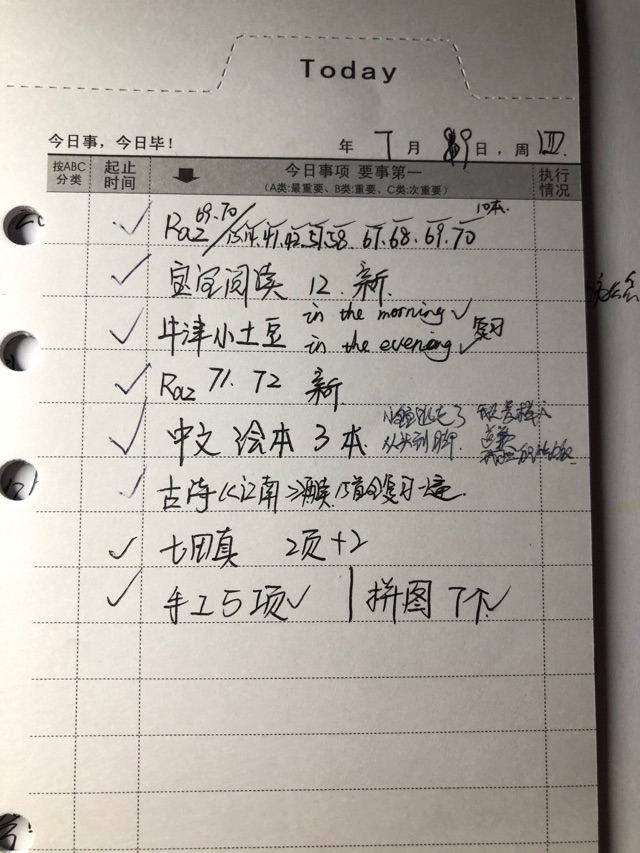 Today
今日事，今日毕！ 年 7 月 9 日，周 III.
按ABC分类 起止时间 今日事项 要事第一 执行情况
（A类:最重要、B类:重要、C类:次重要）
69.70 10本.
Raz 57.58. 67.68.69.70
宝宝阅读 12. 新
in the morning ✓
牛津小土豆 in the evening ✓ 复习
Raz 71. 72 新
中文绘本 3本. 从头到脚.
古诗《江南》 15首复习一遍.
七田真 2页+2
手工5项✓ | 拼图7个✓